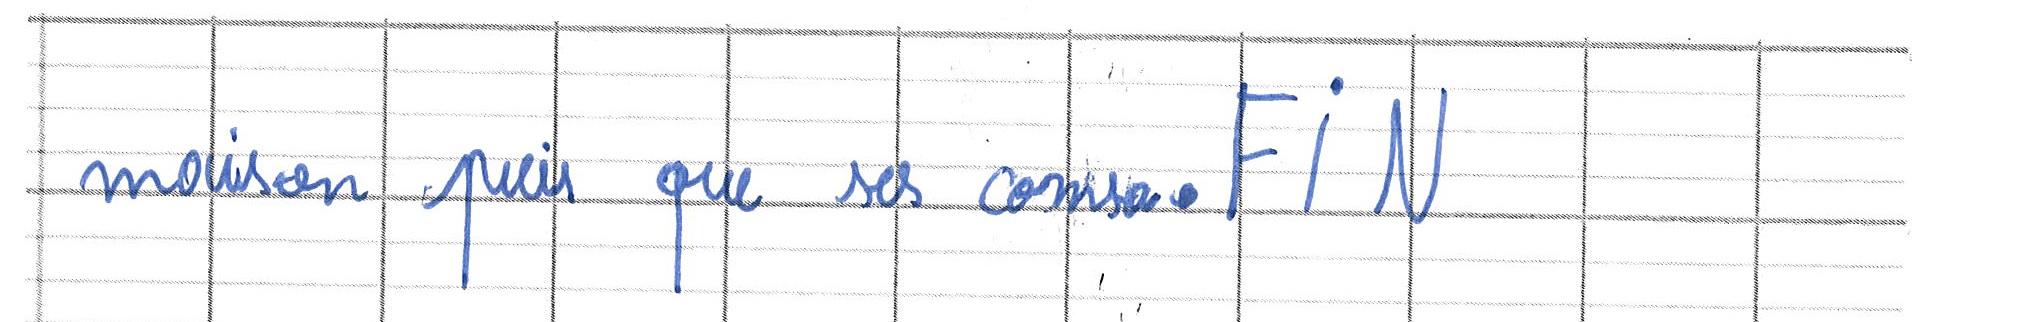 maison puis que ses comsa. FiN